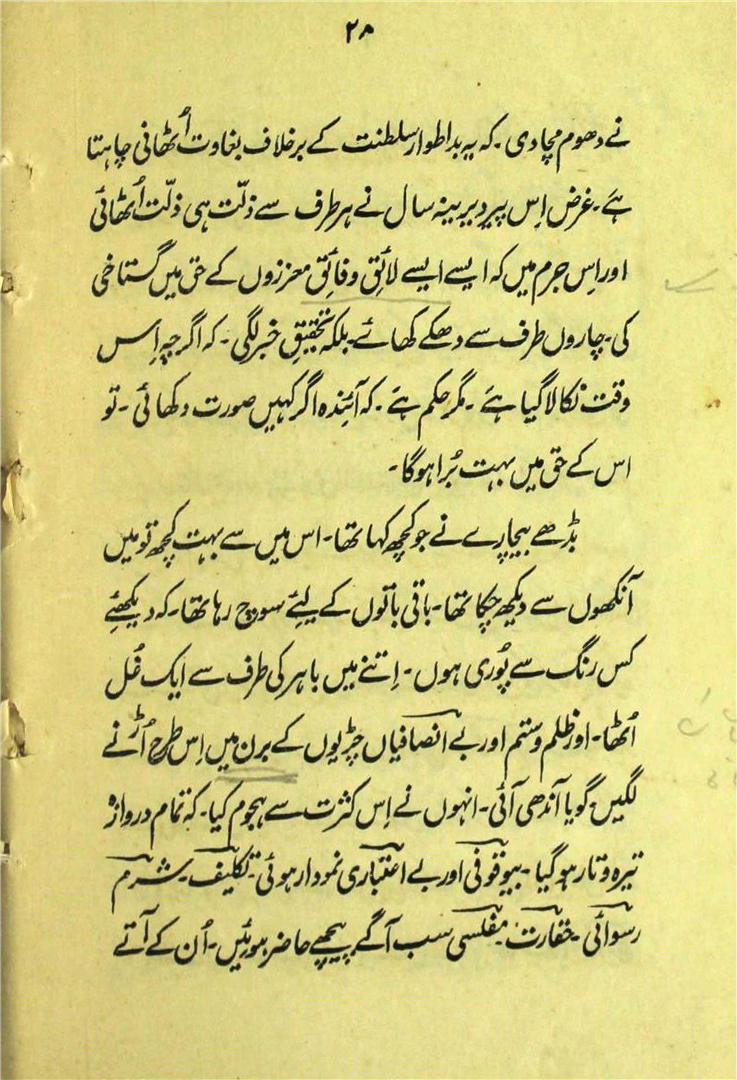 ۲۸
نے دھوم مچادی۔ کہ یہ بداطوار سلطنت کے برخلاف بغاوت اُٹھانی چاہتا
ہے۔ غرض اِس پیر دیرینہ سال نے ہر طرف سے ذلّت ہی ذلّت اُٹھائی
اور اِس جرم میں کہ ایسے ایسے لائق و فائق معززوں کے حق میں گستاخی
کی۔ چاروں طرف سے دھکے کھائے۔ بلکہ تحقیق خبر لگی۔ کہ اگرچہ اِس
وقت نکالا گیا ہے۔ مگر حکم ہے۔ کہ آئندہ اگر کہیں صورت دکھائی۔ تو
اس کے حق میں بہت بُرا ہوگا۔
بڈھے بیچارے نے جو کچھ کہا تھا۔ اس میں سے بہت کچھ تو میں
آنکھوں سے دیکھ چکا تھا۔ باقی باتوں کے لیٔے سوچ رہا تھا۔ کہ دیکھئے
کس رنگ سے پُوری ہوں۔ اِتنے میں باہر کی طرف سے ایک غُل
اُٹھا۔ اور ظلم و ستم اور بے انصافیاں چڑیوں کے برن میں اِس طرح اُڑنے
لگیں۔ گویا آندھی آئی۔ انہوں نے اِس کثرت سے ہجوم کیا۔ کہ تمام دروازہ
تیرہ و تار ہو گیا۔ بیوقوفی اور بے اعتباری نمودار ہوئی۔ تکلیف۔ شرم
رسوائی۔ حقارت۔ مفلسی سب آگے پیچھے حاضر ہوئیں۔ اُن کے آتے